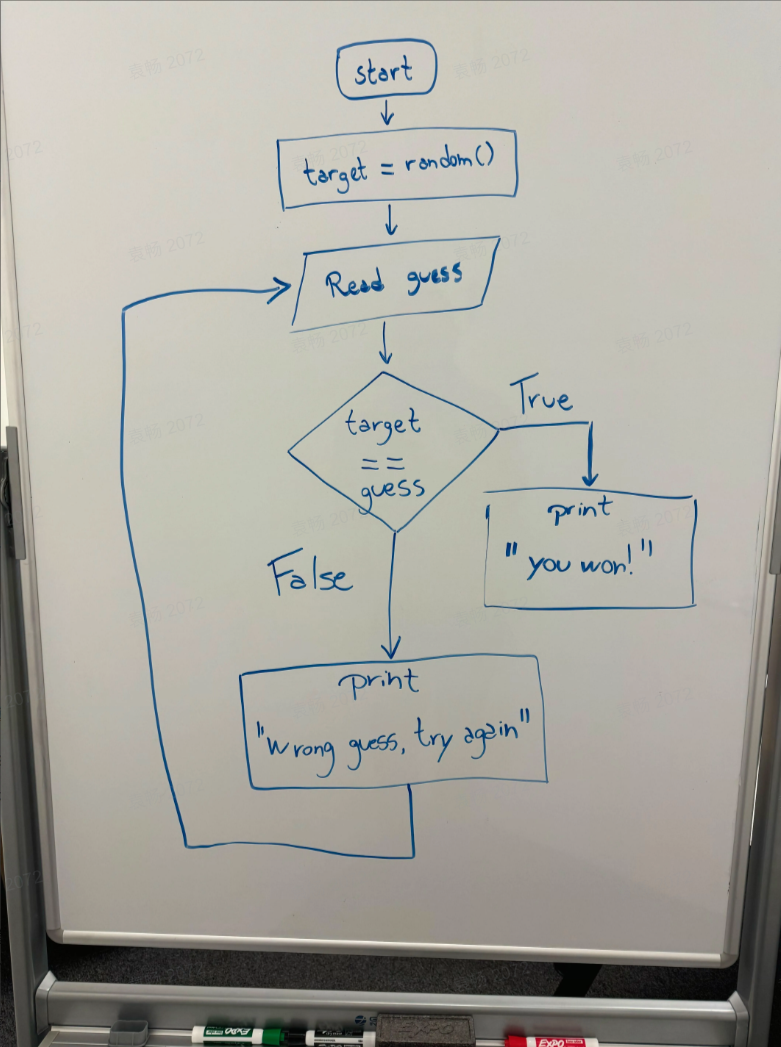 start
target = random()
Read guess
target
==
guess
True
print
"you won!"
False
print
"Wrong guess, try again"
袁杨 2072
EXPO
EXPO
EXPO